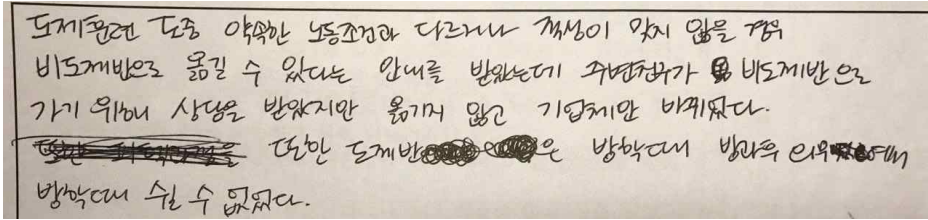 도제훈련 도중 약속한 노동조건과 다르거나 적성이 맞지 않을 경우
비도제반으로 옮길 수 있다는 안내를 받았는데 주변친구가 비도제반으로
가기 위해 상담을 받았지만 옮기지 않고 기업체만 바뀌었다.
또한 도제반은 방학때 방과후
방학때 쉴 수 없었다.